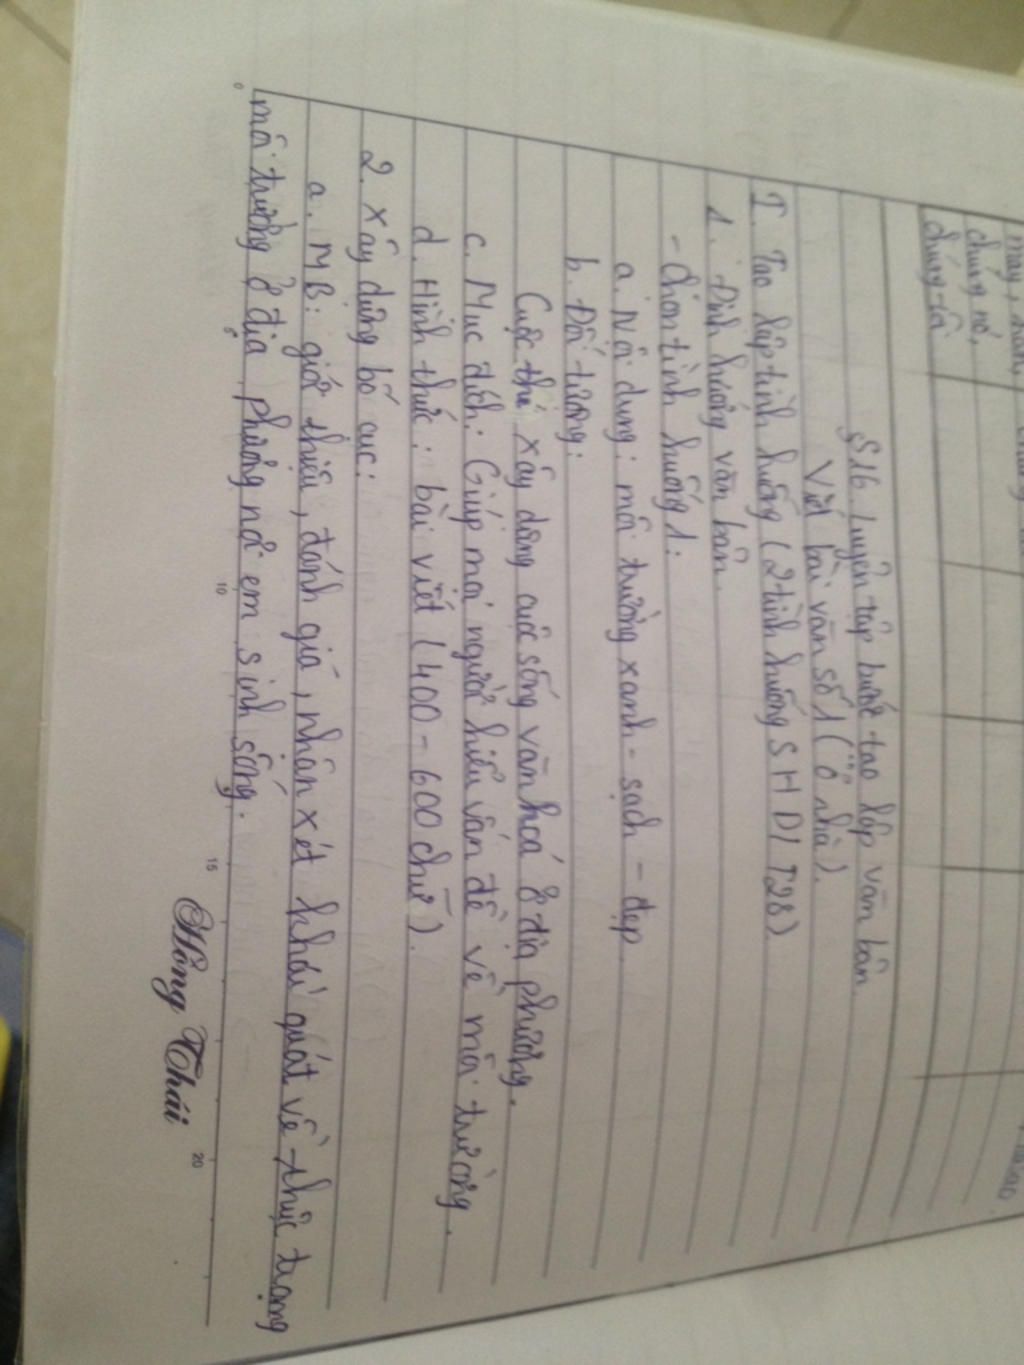 chúng nó,
chúng ta
§16. Luyện tập bước tạo lập văn bản
Viết bài văn số 1 (ở nhà).
I. Tạo lập tình huống (2 tình huống SHD/T28)
1. Định hướng văn bản.
- chọn tình huống 1:
a. Nội dung: môi trường xanh - sạch - đẹp.
b. Đối tượng:
Cuộc thi xây dựng cuộc sống văn hoá ở địa phương.
c. Mục đích: Giúp mọi người hiểu vấn đề về môi trường.
d. Hình thức: bài viết (400 - 600 chữ).
2. Xây dựng bố cục:
a. MB: giới thiệu, đánh giá, nhận xét khái quát về thực trạng
môi trường ở địa phương nơi em sinh sống.
10 15 20
Hồng Thái